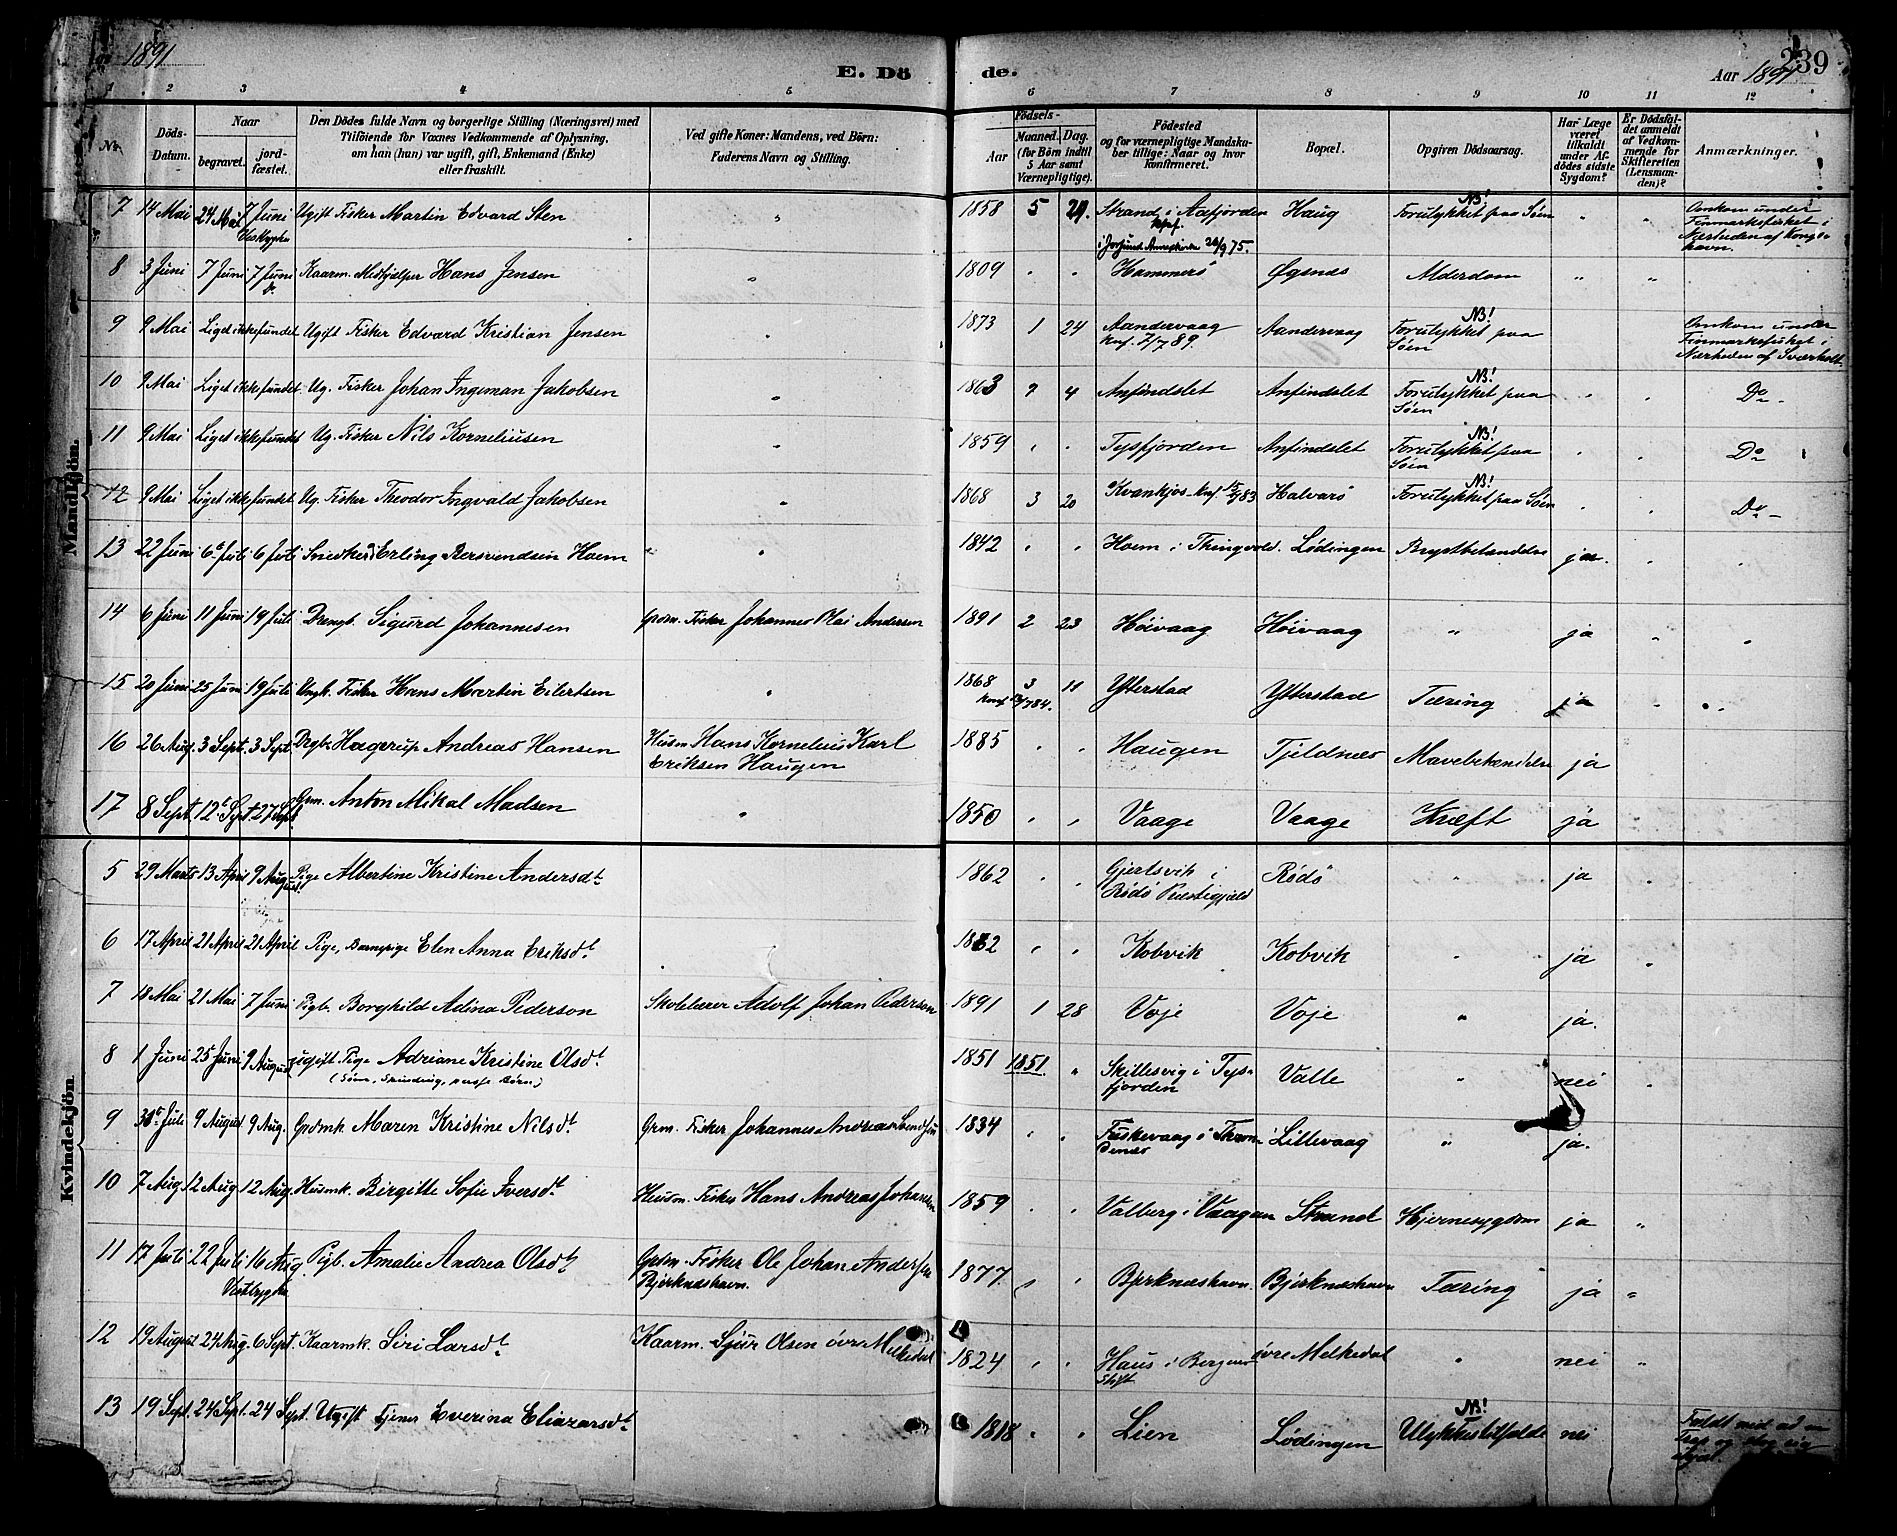 1891
E. Dö
de.
Aar 1891
239
1 2 3 4 5 6 7 8 9 10 11 12
Nr.
Döds-Datum.
Naar
begravet.
jordfæstet.
Den Dödes fulde Navn og borgerlige Stilling (Næringsvei) med
Tilföiende for Voxnes Vedkommende af Oplysning,
om han (hun) var ugift, gift, Enkemand (Enke)
eller fraskilt.
Ved gifte Koner: Mandens, ved Börn:
Faderens Navn og Stilling.
Aar
Födsels-
Maaned. Dag.
(for Börn indtil
5 Aar samt
Værnepligtige).
Födested
og for værnepligtige Mandska-
ber tillige: Naar og hvor
konfirmeret.
Bopæl.
Opgiven Dödsaarsag.
Har Læge
været
tilkaldt
under Af-
dödes sidste
Sygdom?
Er Dödsfal-
det anmeldt
af Vedkom-
mende for
Skifteretten
(Lensman-
den)?
Anmærkninger.
Mandkjön.
7 14 Mai 24 Mai 7 Juni Ugift Fisker Martin Edvard Sten " 1858 5 29. Strand i Aafjorden Haug NB! Forulykket paa Söen " " Omkom under
Finmarksfisket i
Nærheden af Kongs-
havn.
8 3 Juni 7 Juni 7 Juni Kaarm. Medhjælper Hans Jensen " 1809 " " Hammerö Øgsnæs Alderdom " "
9 9 Mai Liget ikke fundet Ugift Fisker Edvard Kristian Jensen " 1873 1 24 Aandervaag
Knf. 7/7 89. Aandervaag NB! Forulykket paa
Söen Omkom under
Finmarksfisket i
Nærheden af Sværholt
10 9 Mai Liget ikke fundet Ug. Fisker Johan Ingeman Jakobsen " 1863 9 4 Anfindslet Anfindslet NB! Forulykket paa
Söen " " Do.
11 9 Mai Liget ikke fundet Ug. Fisker Nils Korneliusen " 1859 " " Tysfjorden Anfindslet NB! Forulykket paa
Söen " " Do
12 9 Mai Liget ikke fundet Ug. Fisker Theodor Ingvald Jakobsen " 1868 3 20 Kvankjos Halvarö NB! Forulykket paa Söen " " Do
13 22 Juni 6te Juli 6 Juli Snedker Erling Bersvendsen Hoem " 1842 " " Hoem i Thingvold. Lödingen Brystbetændelse ja. " "
14 6 Juni 11 Juni 19 Juli Drengb. Sigurd Johannesen Grdm. Fisker Johannes Olai Andersen 1891 2 23 Höivaag Höivaag " ja " "
15 20 Juni 25 Juni 19 Juli Ungk. Fisker Hans Martin Eilertsen " 1868 3 11 Ytterstad Ytterstad Tæring ja " "
16 26 Aug. 3 Sept. 3 Sept. Drgb. Hagerup Andreas Hansen Husm Hans Kornelius Karl
Eriksen Haugen 1885 " " Haugen Tjeldnæs Mavebetændelse ja
17 8 Sept. 12te Sept 27 Sept. Grm. Anton Mikal Madsen " 1850 " " Vaage Vaage Kræft ja
Kvindekjön.
5 29 Marts 13 April 9 August Pige Albertine Kristine Andersdt 1862 " " Gjertsvik i
Rödö Præstegjæld Rödö " ja "
6 17 April 21 April 21 April Pige, Elen Anna Eriksdt. " " Kobvik Kobvik " ja "
7 18 Mai 21 Mai 7 Juni Pigb. Borghild Adina Pederson Skolelærer Adolf Johan Pederson 1891 1 28 Voje Voje " ja.
8 1 Juni 25 Juni 9 August ugift Pige Adriane Kristine Olsdt. 1851 1851. " Skillesvig i Tys-
fjorden Valle " nei "
9 30te Juli 9 August 9 Aug. Grdmk. Maren Kristine Nilsdt. Grm. Fisker Johannes Andreas 1834 " " Fiskevaag i Thron-
denæs Lillevaag " ja.
10 7 Aug 12 Aug 12 Aug. Husmk. Birgitte Sofie Iversdt. Husm. Fisker Hans Andreas Johansen 1859 " " Valberg i Vaagan Strand Hjernesygdom ja "
11 17 Juli 22 Juli 16 Aug Pigb. Amalie Andrea Olsdt Grdm. Fisker Ole Johan Andersen
Bjerknæshavn. 1877. " " Bjerknæshavn. Bjerknæshavn Tæring ja "
12 19 August 24 Aug. 6 Sept. Kaarmk. Siri Larsdt. Kaarm. Sjur Olsen övre Melkedal 1824 " " Haus i Bergens
Stift övre Melkedal " nei "
13 19 Sept. 24 Sept. 24 Sept. Ugift Tjener Everina Eliazarsdt 1818 " " Lien Lödingen NB! Ulykkestilfælde nei Faldt ned ad en